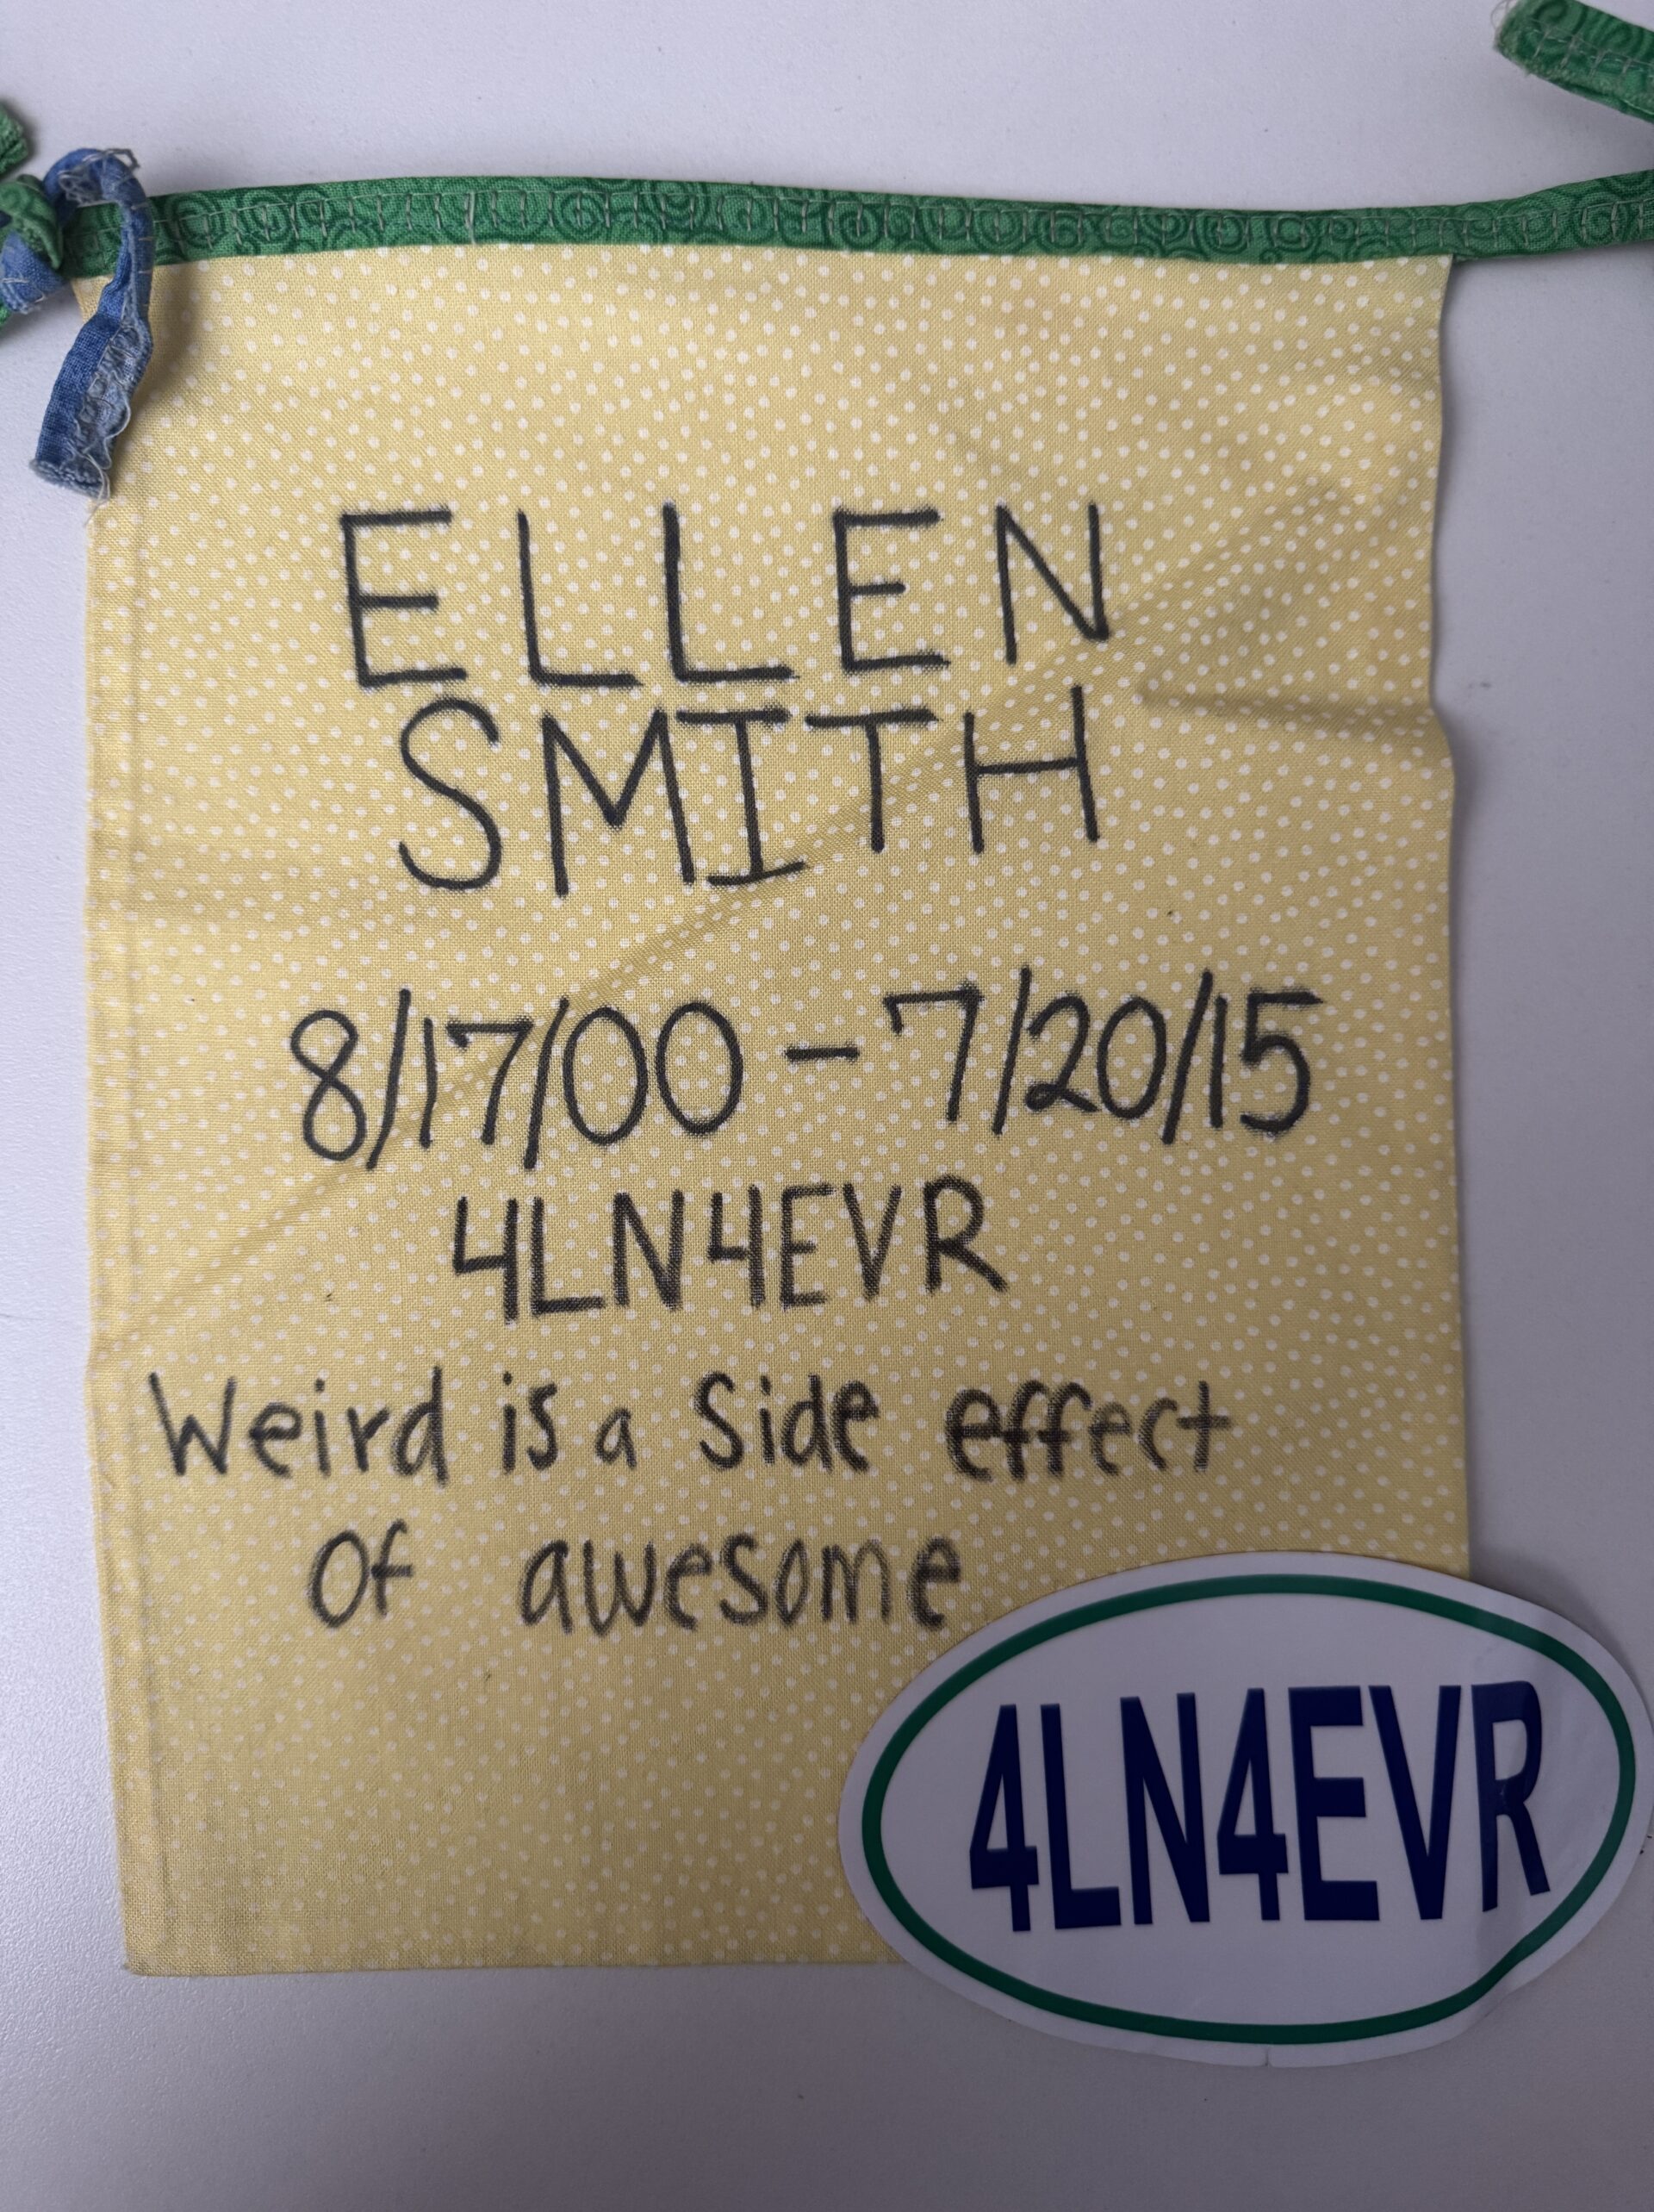 ELLEN
SMITH
8/17/00 - 7/20/15
4LN4EVR
Weird is a Side effect
Of awesome
4LN4EVR